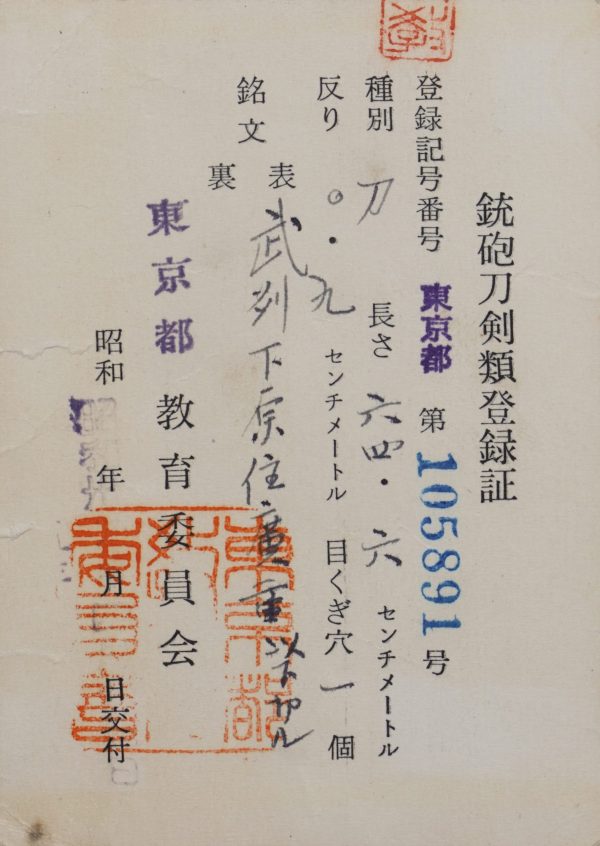 銃砲刀剣類登録証
登録記号番号 東京都 第 105891 号
種別 刀 長さ 六四・六 センチメートル
反り 〇・九 センチメートル 目くぎ穴 一 個
銘文
表 武州下原住廣重以下切ル
裏
東京都 教育委員会
昭和 年 月 日交付